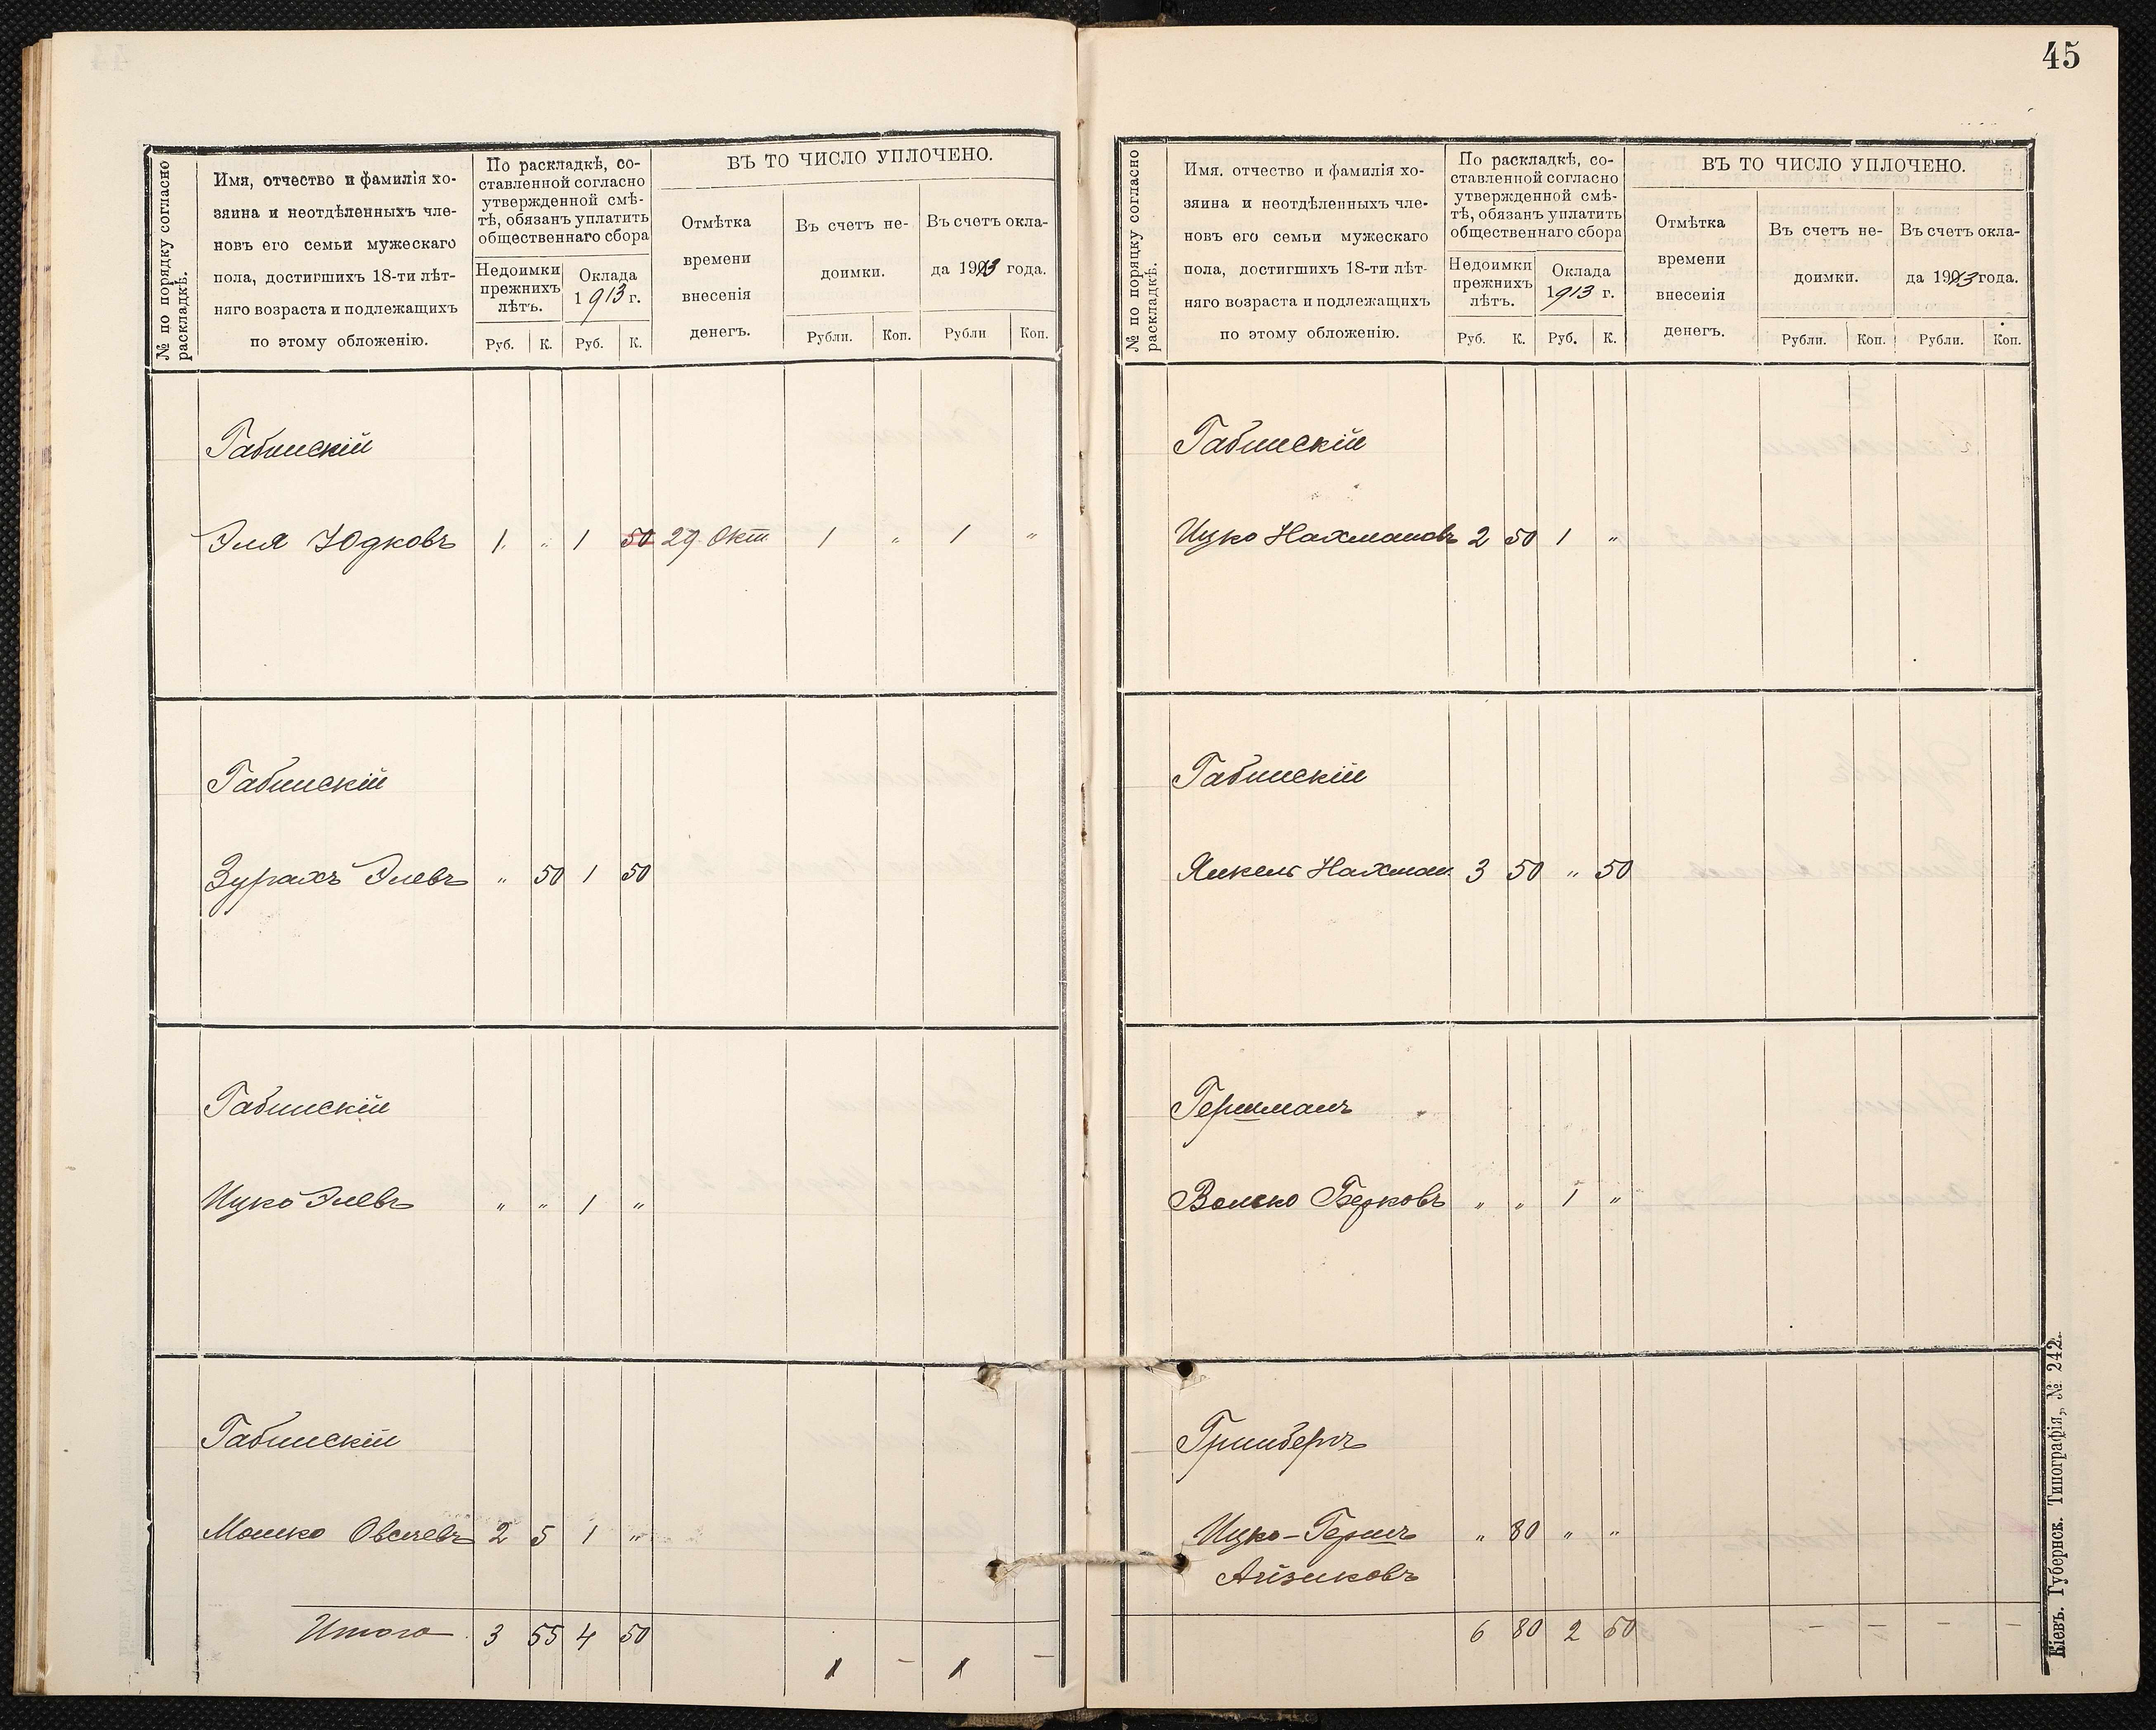 45
№ по порядку согласно раскладкѣ.
Имя, отчество и фамилія хо-
зяина и неотдѣленныхъ чле-
новъ его семьи мужескаго
пола, достигшихъ 18-ти лѣт-
няго возраста и подлежащихъ
по этому обложенію.
По раскладкѣ, со-
ставленной согласно
утвержденной смѣ-
тѣ, обязанъ уплатить
общественнаго сбора
Недоимки
прежнихъ
лѣтъ.
Оклада
1913 г.
Руб. К. Руб. К.
ВЪ ТО ЧИСЛО УПЛОЧЕНО.
Отмѣтка
времени
внесенія
денегъ.
Въ счетъ не-
доимки.
Рубли. Коп.
Въ счетъ окла-
да 1913 года.
Рубли Коп.
Габинскій
Эля Юдковъ 1 " 1 50 29 Окт. 1 " 1 "
Габинскій
Зурахъ Элевъ " 50 1 50
Габинскій
Ицко Элевъ " " 1 "
Габинскій
Мошко Овсеевъ 2 5 1 "
Итого 3 55 4 50
1 - 1 -
№ по порядку согласно раскладкѣ.
Имя. отчество и фамилія хо-
зяина и неотдѣленныхъ чле-
новъ его семьи мужескаго
пола, достигшихъ 18-ти лѣт-
няго возраста и подлежащихъ
по этому обложенію.
По раскладкѣ, со-
ставленной согласно
утвержденной смѣ-
тѣ, обязанъ уплатить
общественнаго сбора
Недоимки
прежнихъ
лѣтъ.
Оклада
1913 г.
Руб. К. Руб. К.
ВЪ ТО ЧИСЛО УПЛОЧЕНО.
Отмѣтка
времени
внесенія
денегъ.
Въ счетъ не-
доимки.
Рубли. Коп.
Въ счетъ окла-
да 1913 года.
Рубли. Коп.
Габинскій
Ицко Нахмановъ 2 50 1 "
Габинскій
Янкель Нахман. 3 50 " 50
Гершманъ
Волько Берковъ " " 1 "
Гринбергъ
Ицко-Гершъ " 80 " "
Айзиковъ
6 80 2 50 - - - -
Кіевъ. Губернск. Типографія, № 242.